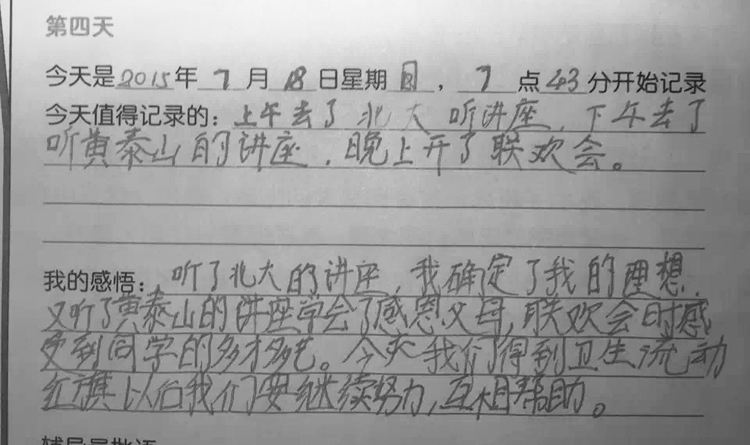 第四天
今天是2015年7月18日星期日，7点43分开始记录
今天值得记录的：上午去了北大听讲座，下午去了
听黄泰山的讲座，晚上开了联欢会。
我的感悟：听了北大的讲座，我确定了我的理想，
又听了黄泰山的讲座学会了感恩父母，联欢会时感
受到同学的多才多艺。今天我们得到卫生流动
红旗以后我们要继续努力，互相帮助。